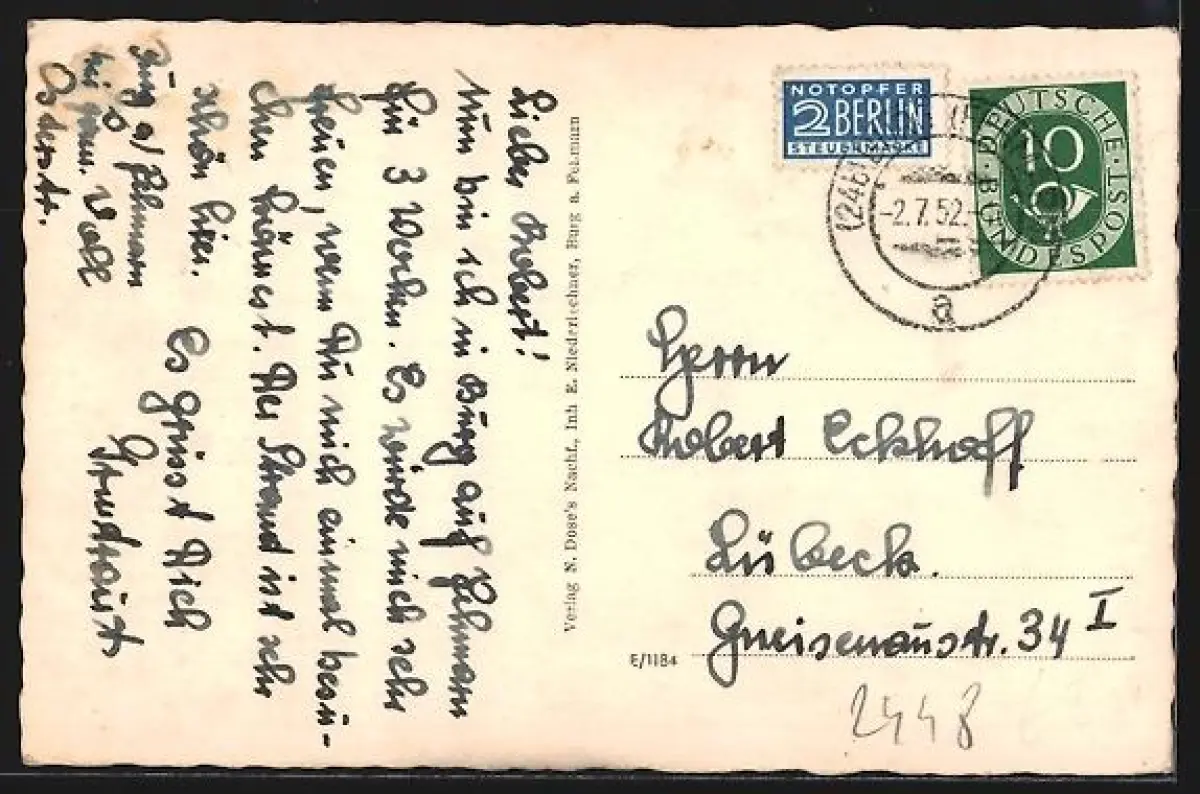 Lieber Robert!
Nun bin ich in Burg auf Fehmarn
für 3 Wochen. Es würde mich sehr
freuen, wenn Du mich einmal besu-
chen kämest. Der Strand ist sehr
schön hier.
Es grüsst Dich
Burg a/ Fehmarn
bei
Osterstr.
Verlag N. Dose's Nachf., Inh E. Niederlechner, Burg a. Fehmarn
NOTOPFER
2 BERLIN
STEUERMARKE
DEUTSCHE BUNDESPOST
10
(24b)
-2.7.52.-
a
Herrn
Robert Eckhoff
Lübeck.
Gneisenaustr. 34 I
E/1184
2448